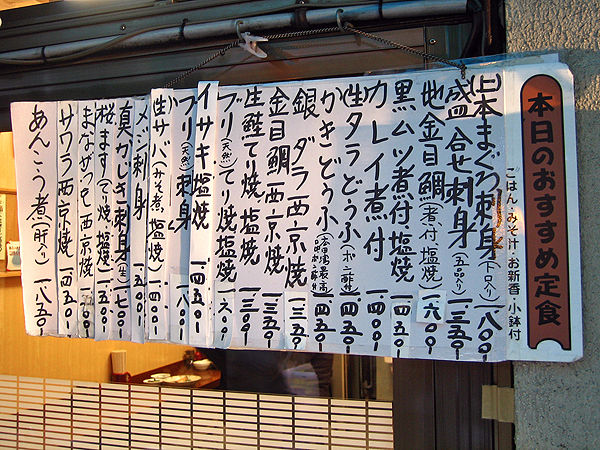 本日のおすすめ定食
ごはん・みそ汁・お新香・小鉢付
本まぐろ刺身 一、八〇〇
盛合せ刺身（五品入り） 一、三五〇
地金目鯛（煮付・塩焼） 一、六〇〇
黒ムツ煮付・塩焼 一、四五〇
カレイ煮付 一、四〇〇
生タラどうふ（ポン酢） 一、四五〇
かきどうふ 一、四五〇
銀ダラ西京焼 一、三五〇
金目鯛西京焼 一、三〇〇
生鮭てり焼・塩焼 一、三〇〇
ブリ（天然）てり焼・塩焼
イサキ塩焼 一、四五〇
ブリ（天然）刺身 一、八〇〇
生サバ（みそ煮・塩焼） 一、四〇〇
メジマ刺身 一、四五〇
真かじき刺身（生） 一、七〇〇
桜ます（てり焼・塩焼） 一、五〇〇
まながつを西京焼
サワラ西京焼 一、四五〇
あんこう煮（肝入り） 一、八五〇